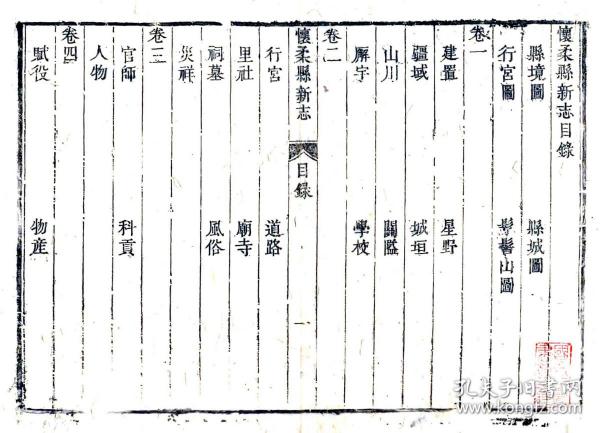 懷柔縣新志目錄
縣境圖 縣城圖
行宮圖 髽髻山圖
卷一
建置 星野
疆域 城垣
山川 關隘
廨宇 學校
卷二
懷柔縣新志 目錄 一
行宮 道路
里社 廟寺
祠墓 風俗
災祥
卷三
官師 科貢
人物
卷四
賦役 物産
孔夫子旧书网
kongfz.com